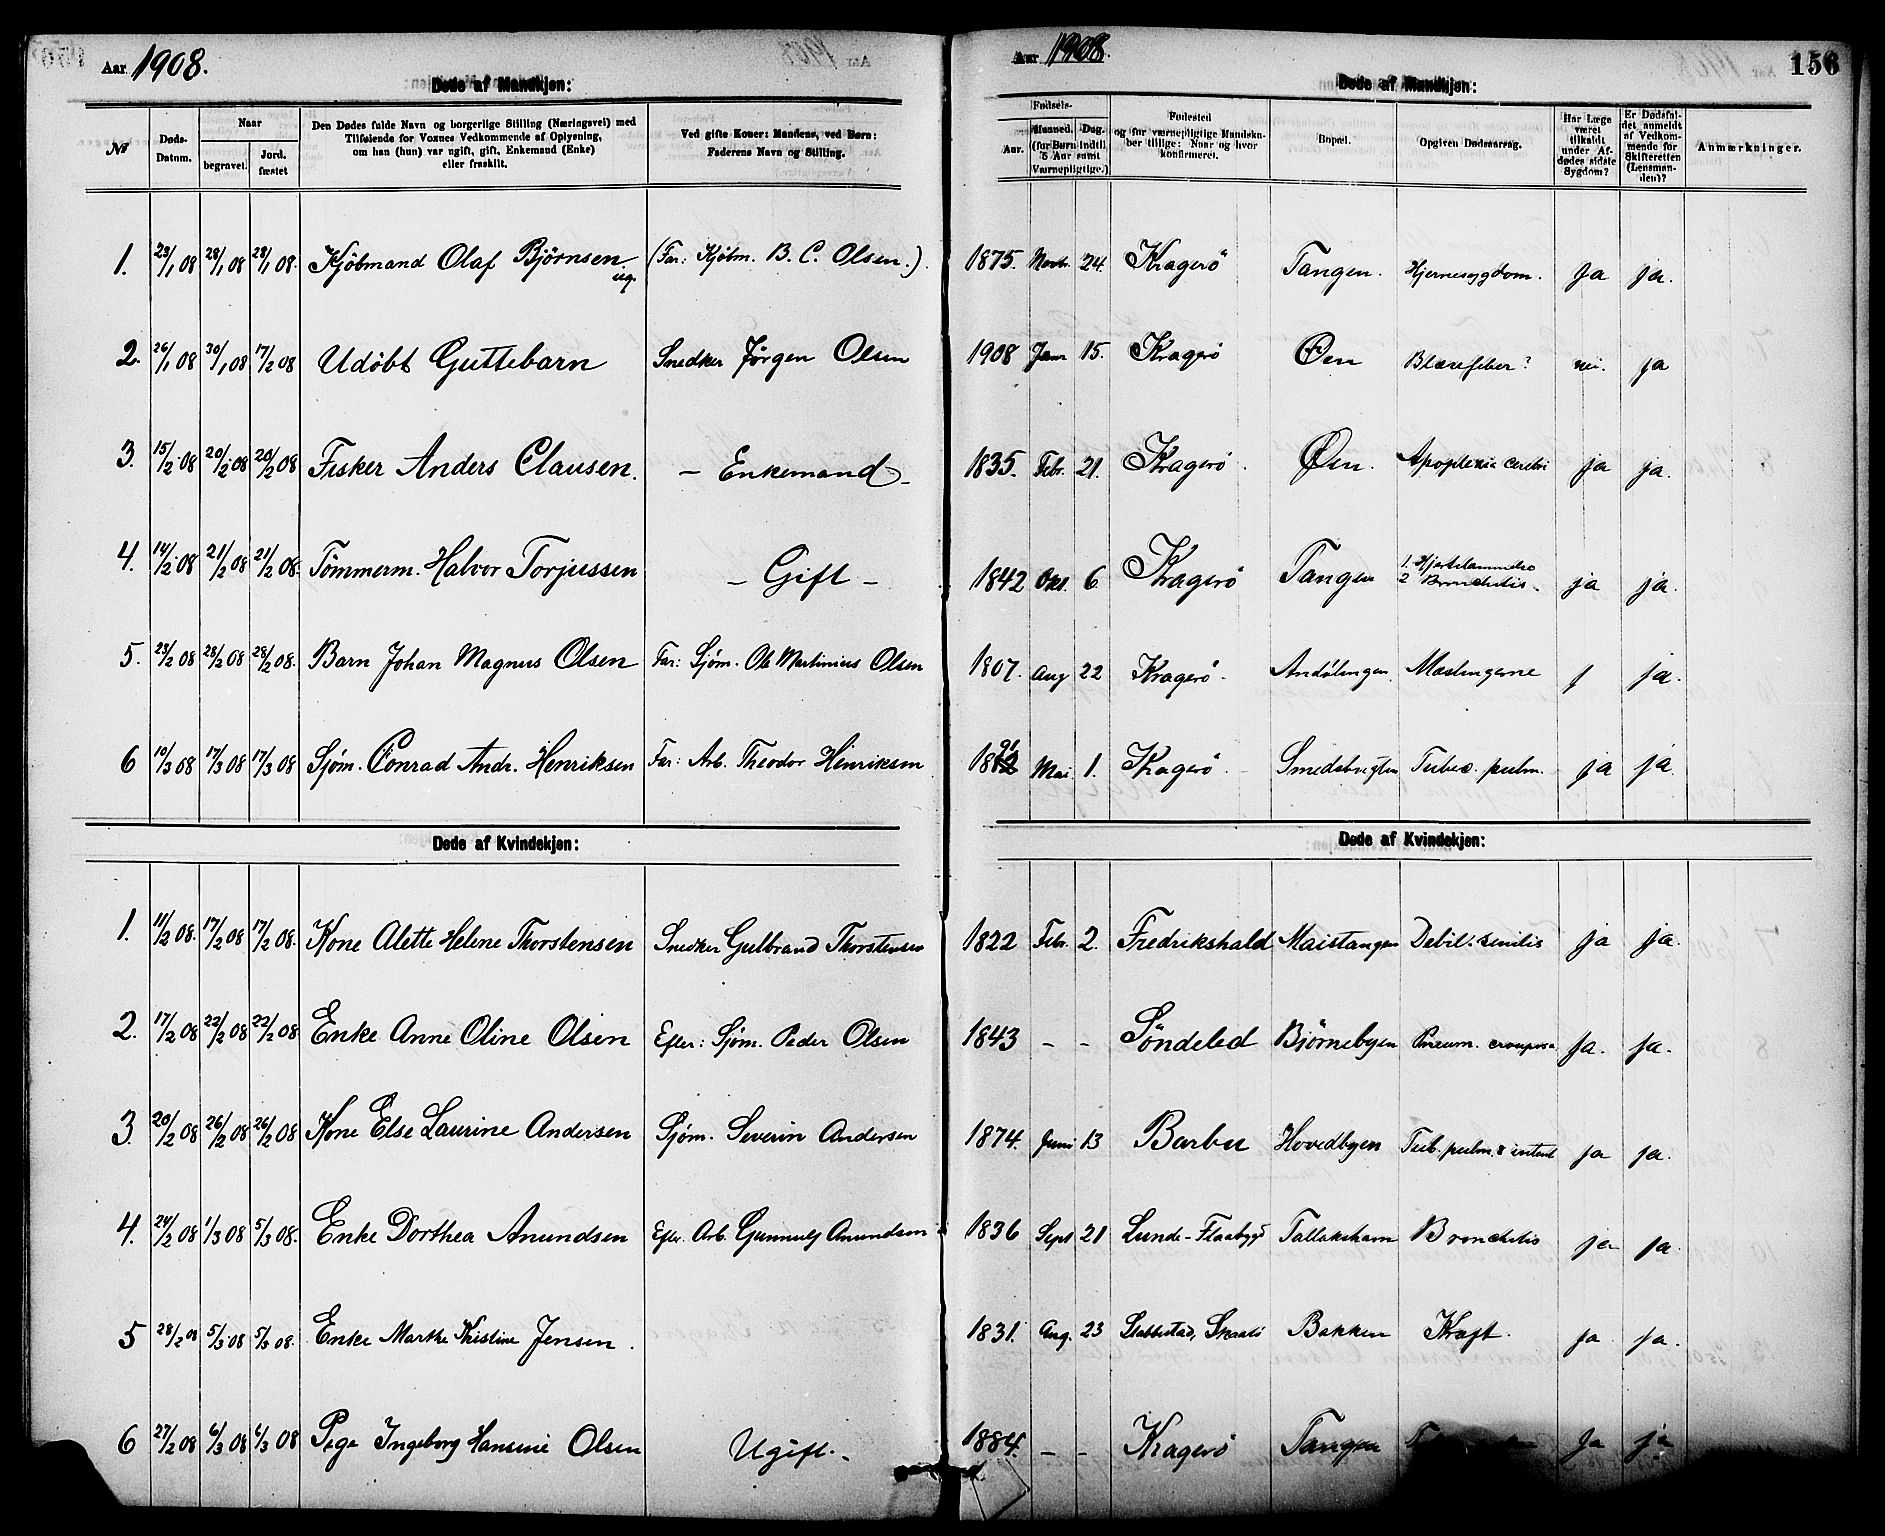 Aar 1908.
Døde af Mandkjøn:
№
Døds-Datum.
Naar
begravet.
Jord.fæstet
Den Dødes fulde Navn og borgerlige Stilling (Næringsvei) med
Tilføiende for Voxnes Vedkommende af Oplysning,
om han (hun) var ugift, gift, Enkemand (Enke)
eller fraskilt.
Ved gifte Koner: Mandens, ved Børn:
Faderens Navn og Stilling.
1. 23/1 08 28/1 08 28/1 08. Kjøbmand Olaf Bjørnsen (Far: Kjøbm. B. C. Olsen.)
ug.
2. 26/1 08 30/1 08 17/2 08 Udøbt Guttebarn Snedker Jørgen Olsen
3. 15/2 08 20/2 08 20/2 08 Fisker Anders Clausen. – Enkemand –
4. 14/2 08 21/2 08 21/2 08. Tömmerm. Halvor Torjussen – Gift –
5. 23/2 08 28/2 08 28/2 08. Barn Johan Magnus Olsen Far: Sjøm. Ole Martinius Olsen
6 10/3 08 17/3 08 17/3 08 Sjøm. Conrad Andr. Henriksen Far: Arb. Theodor Henriksen
Døde af Kvindekjøn:
1. 11/2 08. 17/2 08 17/2 08. Kone Alette Helene Thorstensen Snedker Gulbrand Thorstensen
2. 17/2 08 22/2 08 22/2 08 Enke Anne Oline Olsen Efter: Sjøm. Peder Olsen
3. 20/2 08 26/2 08 26/2 08 Kone Else Laurine Andersen Sjøm. Severin Andersen
4. 24/2 08 1/3 08 5/3 08. Enke Dorthea Anundsen Efter. Arb. Gunnulf Anundsen
5 28/2 08 5/3 08 5/3 08. Enke Marthe Kristine Jensen.
6 27/2 08 6/3 08 6/3 08 Pige Ingeborg Hansine Olsen Ugift.
Aar 1908.
156
Døde af Mandkjøn:
Fødsels-
Aar.
Maaned. Dag.
(for Børn indtil
5 Aar samt
Værnepligtige.)
Fødested
og for værnepligtige Mandskaber tillige: Naar og hvor
konfirmeret.
Bopæl.
Opgiven Dødsaarsag.
Har Læge
været
tilkaldt
under Afdødes sidste
Sygdom?
Er Dødsfaldet anmeldt
af Vedkommende for
Skifteretten
(Lensmanden)?
Anmærkninger.
1875. Novbr. 24. Kragerö Tangen. Hjernesygdom. Ja ja.
1908 Janr 15. Kragerö Øen Blærefeber? nei. ja
1835. Febr. 21. Kragerö. Øen. Apoplexia cerebri ja ja.
1842 Okt. 6 Kragerö Tangen 1. Hjertelammelse
2 Bronchitis. ja ja.
1907. Aug 22 Kragerö. Andölingen Mæslingerne j ja.
1892 91 Mai 1. Kragerö. Smedsbugten Tuberc. pulm. ja ja
Døde af Kvindekjøn:
1822 Febr. 2. Fredrikshald Maistangen Debil. senilis ja ja.
1843 – – Söndeled Björnebyen Pneum. crouposa ja. ja.
1874. Juni 13 Barbu Hovedbyen Tub. pulm. & intest ja ja.
1836 Sept 21 Lunde-Flaabygd Tallakshavn Bronchitis ja ja.
1831. Aug. 23 Stabbestad, Skaatö Bakken Kræft. ja ja.
1884. – – Kragerö Tangen Ja ja